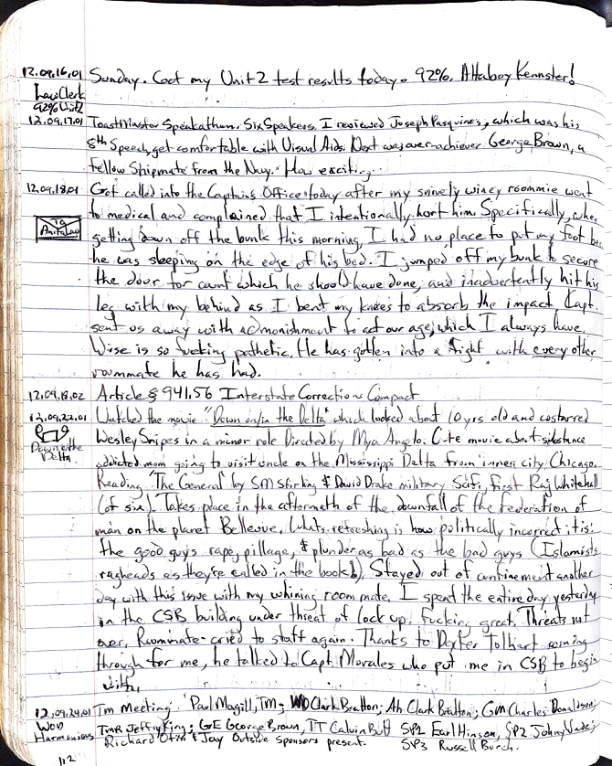 12.09.16.01 Sunday. Got my Unit 2 test results today - 92%. Attaboy Kennster!
Law Clerk
92% Unit 2
12.09.17.01 Toastmaster Speakathon. Six Speakers. I reviewed Joseph Pasquines, which was his
8th Speech, get comfortable with Visual Aids. Next was over-achiever George Brown, a
fellow Shipmate from the Navy. How exciting..
12.09.18.01 Got called into the Captains Office today after my snively wincy roommie went
to medical and complained that I intentionally hurt him. Specifically, when
To
Anita Lao
getting down off the bunk this morning, I had no place to put my foot bec
he was sleeping on the edge of his bed. I jumped off my bunk to secure
the door for count which he should have done, and inadvertently hit his
leg with my behind as I bent my knees to absorb the impact. Capt.
sent us away with admonishment to act our age, which I always have.
Wise is so fucking pathetic. He has gotten into a fight with every other
roommate he has had.
12.09.18.02 Article § 941.56 Interstate Corrections Compact
12.09.22.01 Watched the movie "Down on/in the Delta" which looked about 10 yrs old and costarred
Down on the
Delta
Wesley Snipes in a minor role Directed by Mya Angelo. Cute movie about substance
addicted mom going to visit uncle on the Mississippi Delta from inner city Chicago.
Reading The General by SM Stirling & David Drake military Scifi, first Raj Whitehall
(of six). Takes place in the aftermath of the downfall of the Federation of
man on the planet Bellevue. Whats refreshing is how politically incorrect it is:
the good guys rape, pillage, & plunder as bad as the bad guys (Islamists
ragheads as they're called in the book). Stayed out of confinement another
day with this issue with my whining room mate. I spend the entire day yesterday
in the CSB building under threat of lock up. Fucking great. Threats not
over, Roominate cried to staff again. Thanks to Dexter Tolbert coming
through for me, he talked to Capt. Morales who put me in CSB to begin
with.
12.09.24.01 TM Meeting: Paul Magill, TM; WOD Clark Bratton; Ah Clark Bratton; Gm Charles Donaldson;
WOD
Harmonious
TMR Jeffry King; GE George Brown, TT Calvin Butt SP1 Earl Hinson, SP2 Johny
Richard Otis & Jay Outside sponsors present. SP3 Russell Burch.
112